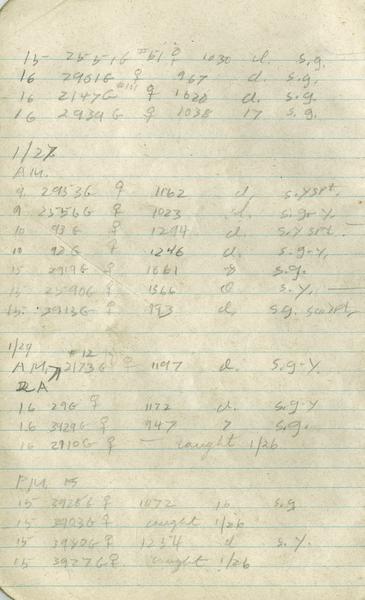 15 2551G #51 ♀ 1030 d. s.g.
16 2901G ♀ 967 d. s.g.
16 2147G #111 ♀ 1020 d. s.g.
16 2939G ♀ 1038 17 s.g.
1/27
A.M.
9 2953G ♀ 1162 d, s.y sprt,
9 2556G ♀ 1023 d. s.g-y,
10 93G ♀ 1294 d. s.y sprt.
10 92G ♀ 1246 d. s.g-y,
15 2919G ♀ 1061 8 s.g.
15 2590G ♀ 1366 d s.y, —
15 2913G ♀ 993 d, s.g.
1/29
#12
A.M. 2173G ♀ 1197 d. s.g-y.
16 29G ♀ 1172 d. s.g-y
16 3929G ♀ 947 7 s.g.
16 2910G ♀ — caught 1/26
P.M.
15 3928G ♀ 1072 16 s.g
15 3903G ♀ caught 1/26
15 3980G ♀ 1254 d s.y.
15 3927G ♀ caught 1/26